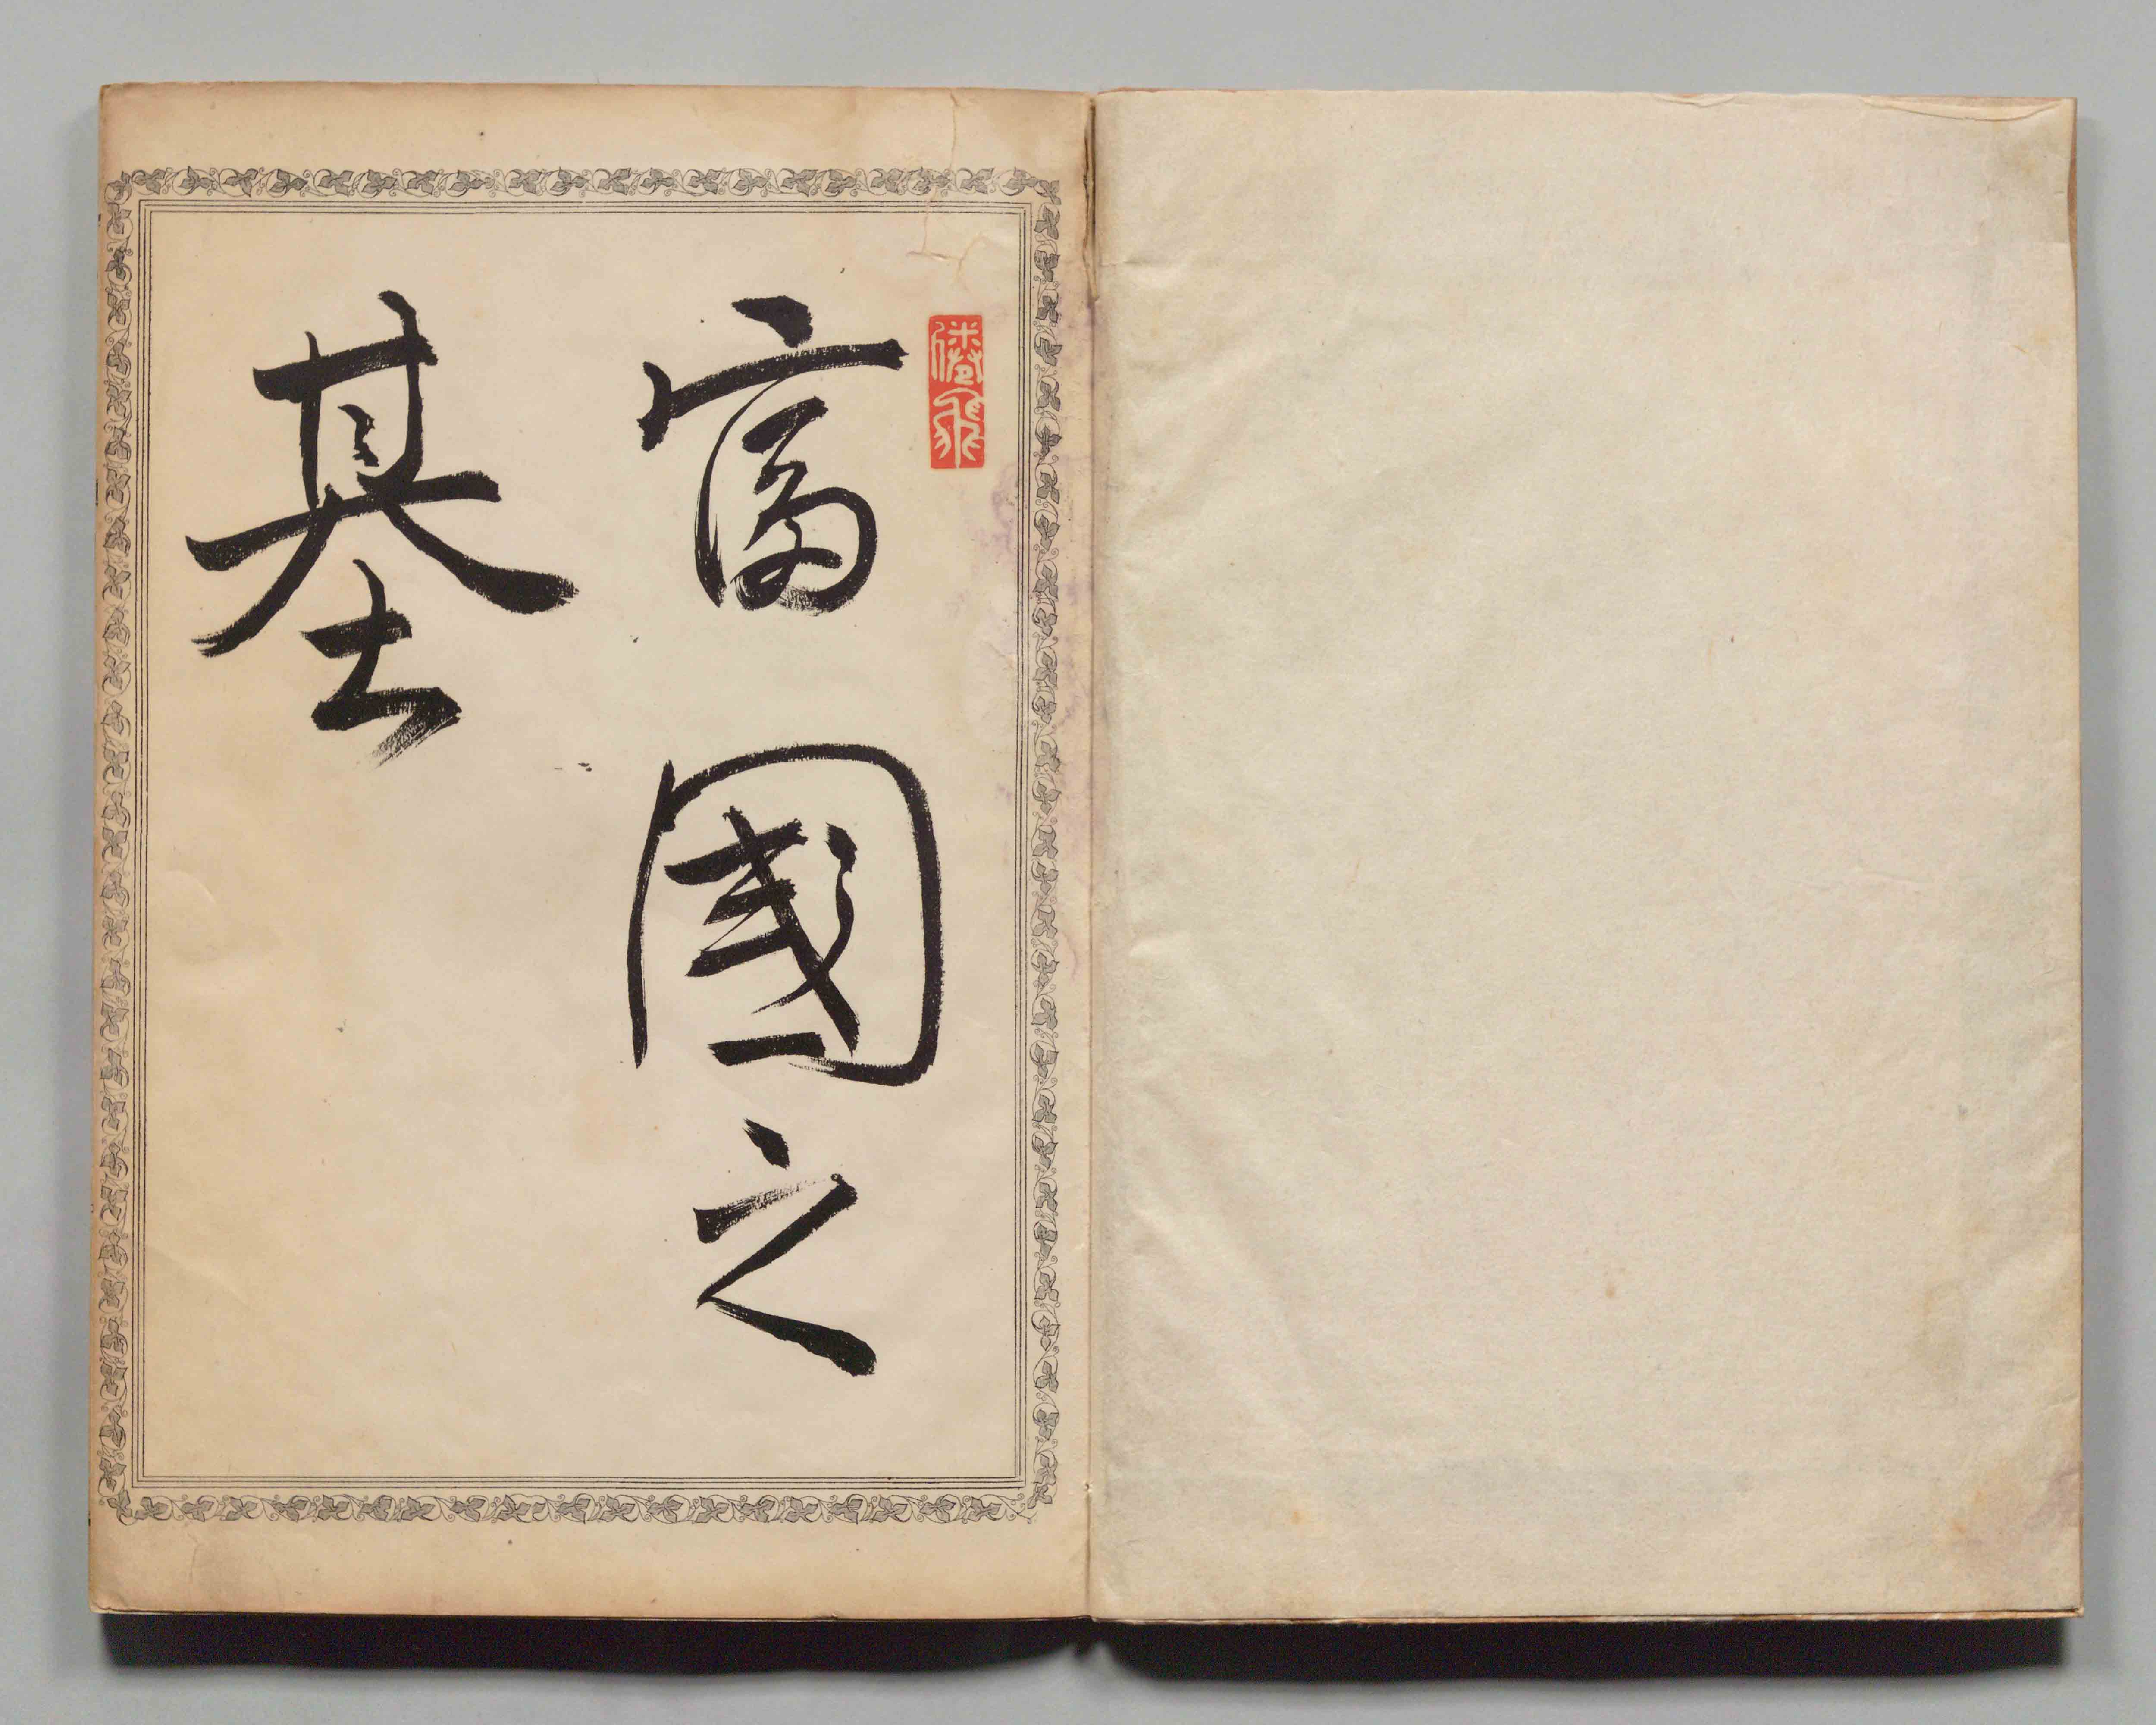 富國之
基